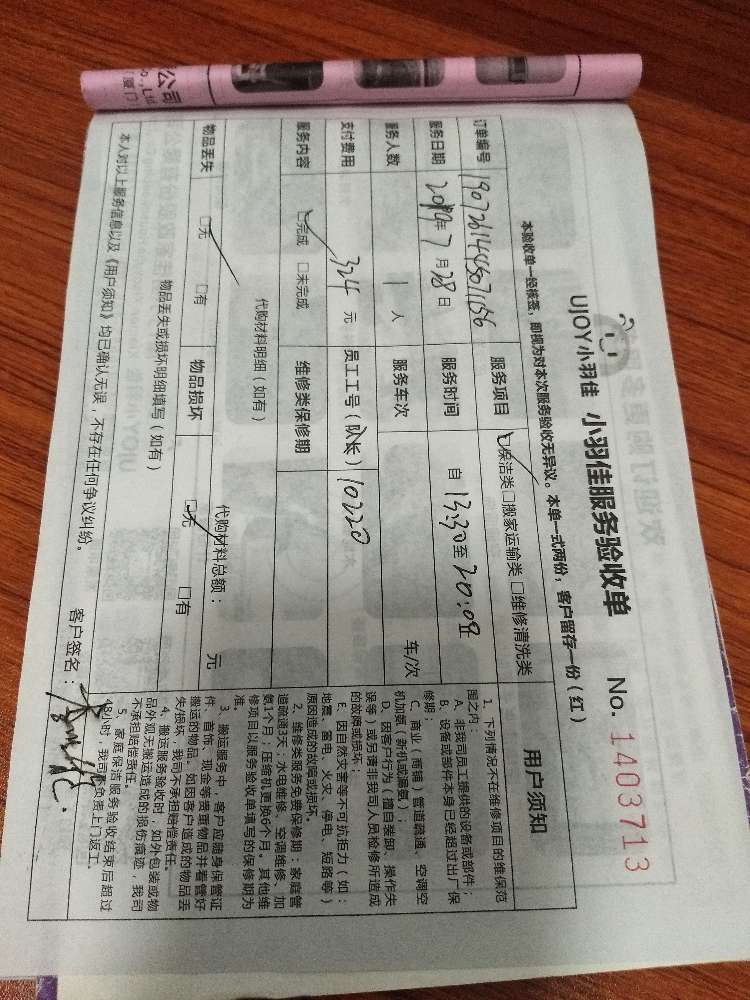 公司
o.,Ltd
厦门
UJOY小羽佳 小羽佳服务验收单 No. 1403713
本验收单一经核签，即视为对本次服务验收无异议。本单一式两份，客户留存一份（红）
订单编号 服务项目 保洁类 □搬家运输类 □维修清洗类
服务日期 2019年7月28日 服务时间 自 13:30 至 20:09
服务人数 1 人 服务车次 车/次
支付费用 324 元 员工工号（队长） 10220
服务内容 完成 □未完成 维修类保修期
代购材料明细（如有） 代购材料总额： 元
物品丢失 □无 □有 物品损坏 □无 □有
物品丢失或损坏明细填写（如有）
本人对以上服务信息以及《用户须知》均已确认无误，不存在任何争议纠纷。
客户签名：
用户须知
1、下列情况不在维修项目的维保范
围之内：
A、非我司员工提供的设备或部件；
B、设备或部件本身已经超过出厂保
修期；
C、商业（商铺）管道疏通、空调空
机加氨（新机或漏氨）；
D、因客户行为（擅自装卸、操作失
误等）或另请非我司人员检修所造成
的故障或损坏；
E、因自然灾害等不可抗拒力（如：
地震、雷电、火灾、停电、短路等）
原因造成的故障或损坏。
2、维修类服务免费保修期：家庭管
道疏通3天；水电维修、空调维修、加
氨1个月；压缩机更换6个月。其他维
修项目以服务验收单填写的保修期为
准。
3、搬运服务中，客户应随身保管证
件、首饰、现金等贵重物品并看管好
搬运的物品。如因客户造成的物品丢
失/损坏，我司不承担赔偿责任。
4、搬运服务验收时，如外包装或物
品外观无搬运造成的损伤痕迹，我司
不承担赔偿责任。
5、家庭保洁服务验收结束后超过
48小时，我司不负责上门返工。